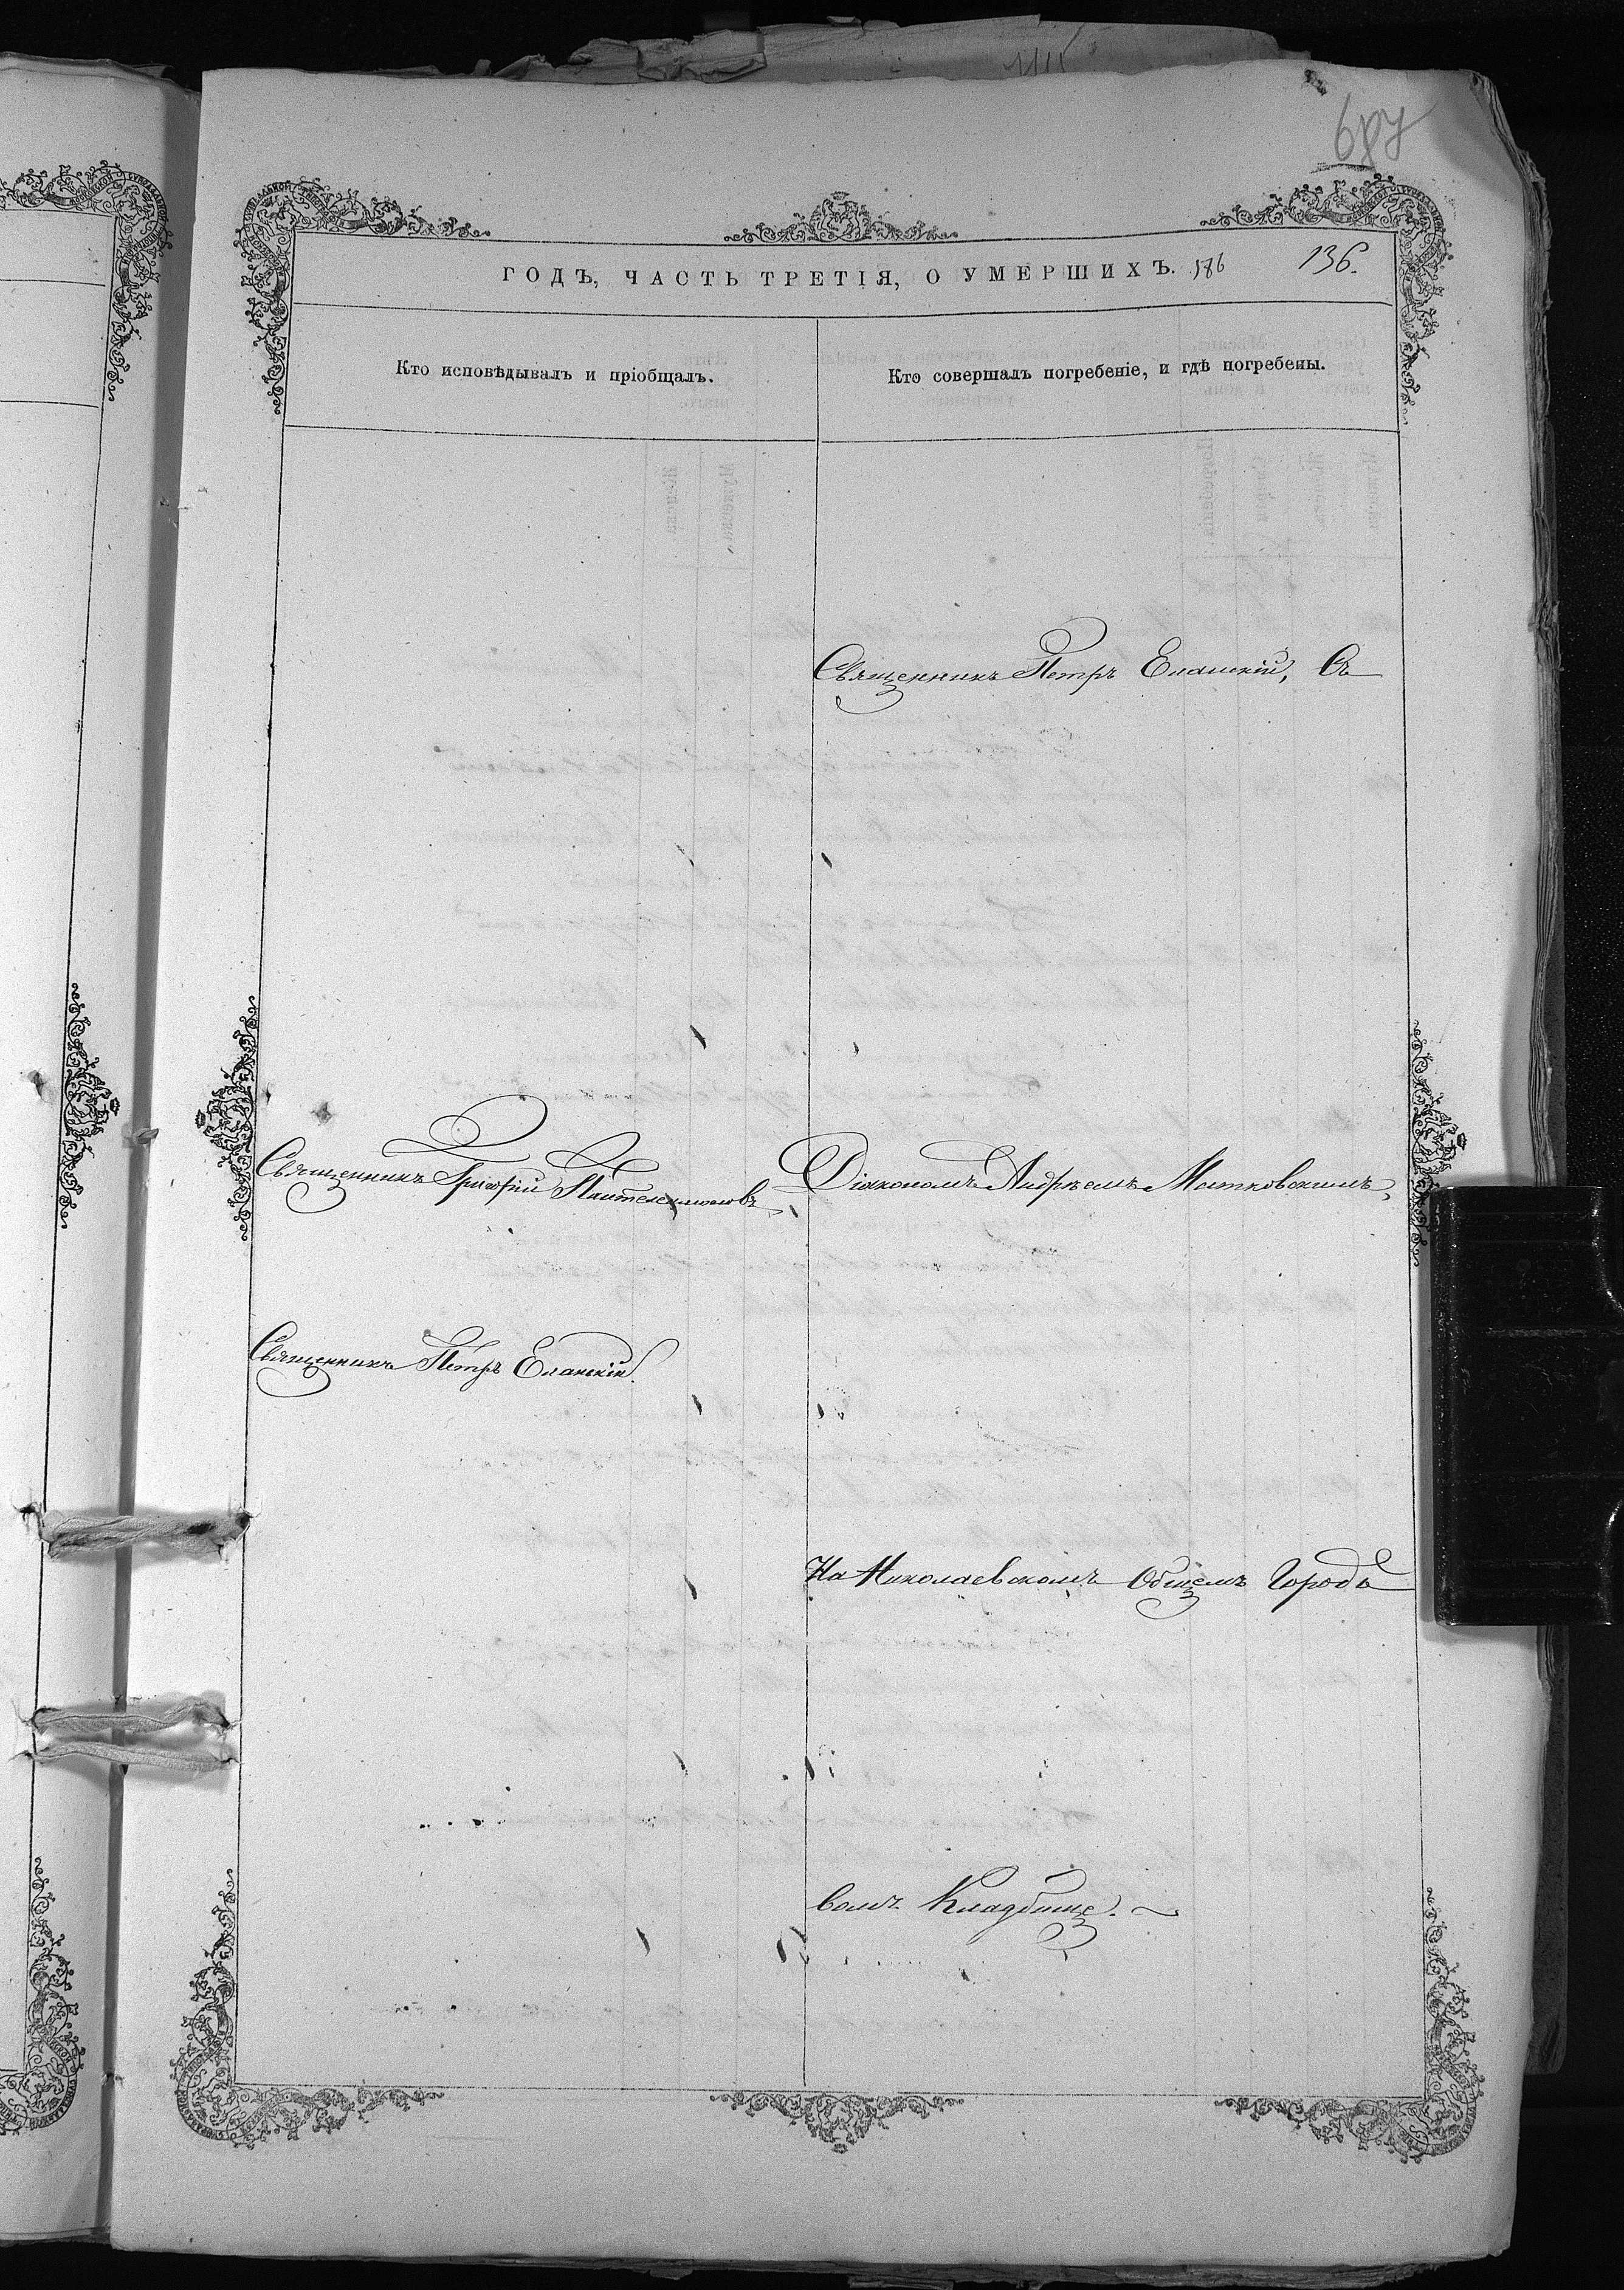 687
ГОДЪ, ЧАСТЬ ТРЕТІЯ, О УМЕРШИХЪ. 586 136.
Кто исповѣдывалъ и пріобщалъ.
Кто совершалъ погребеніе, и гдѣ погребены.
Священникъ Петръ Еланскій, Съ
Священникъ Григорій Пантелеимоновъ
Діакономъ Андреемъ Матковскимъ,
Священникъ Петръ Еланскій.
На Николаевскомъ Общемъ Городо
вомъ Кладбище.